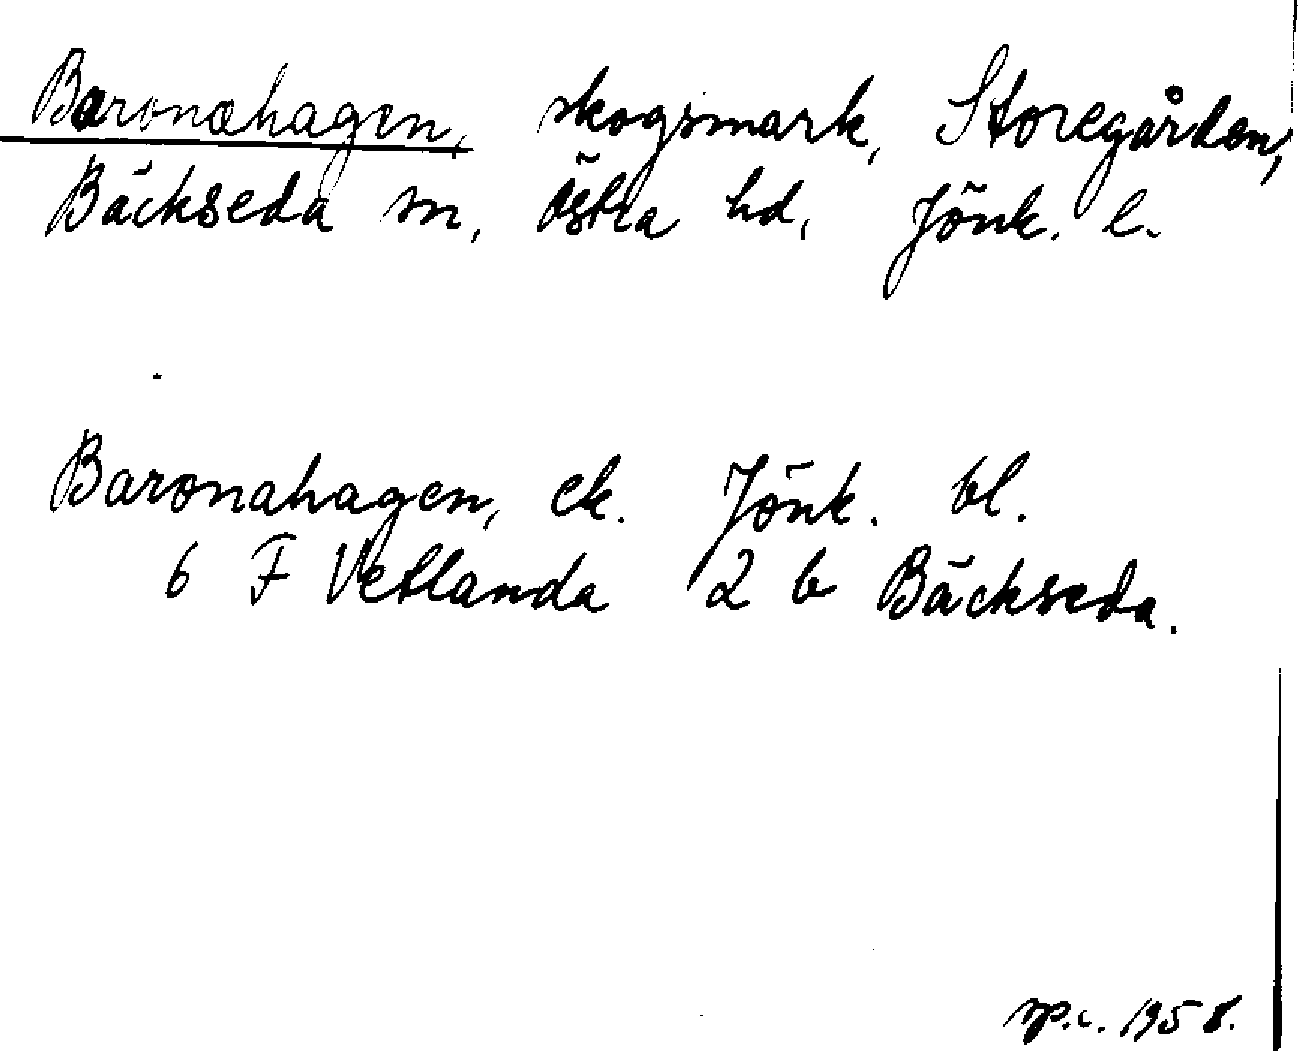 Baronahagen, skogsmark, Storegården,
Bäckseda sn, Östra hd, Jönk. l.
Baronahagen, ek. Jönk. bl.
6 F Vetlanda 2 b Bäckseda.
1958.